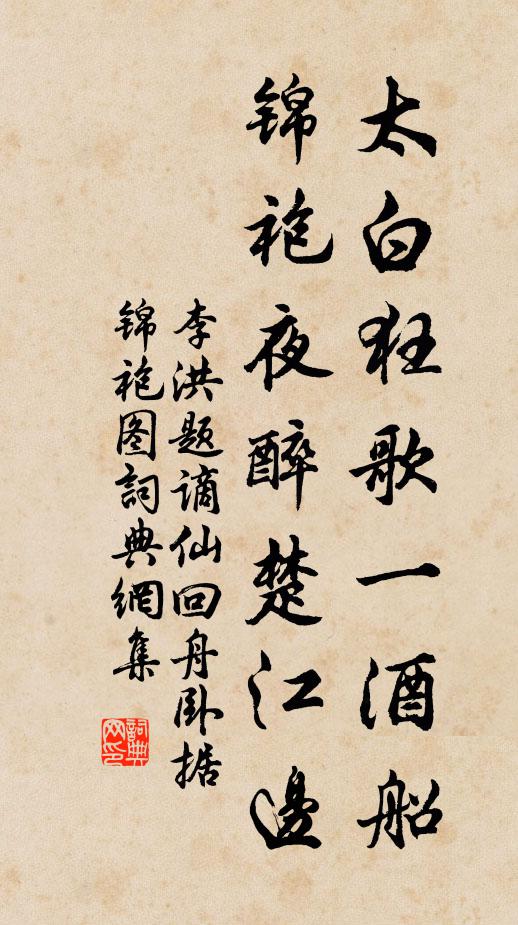 太白狂歌一酒船
锦袍夜醉楚江邊
李洪题谪仙回舟卧据
锦袍图詞典網集
詞典网印